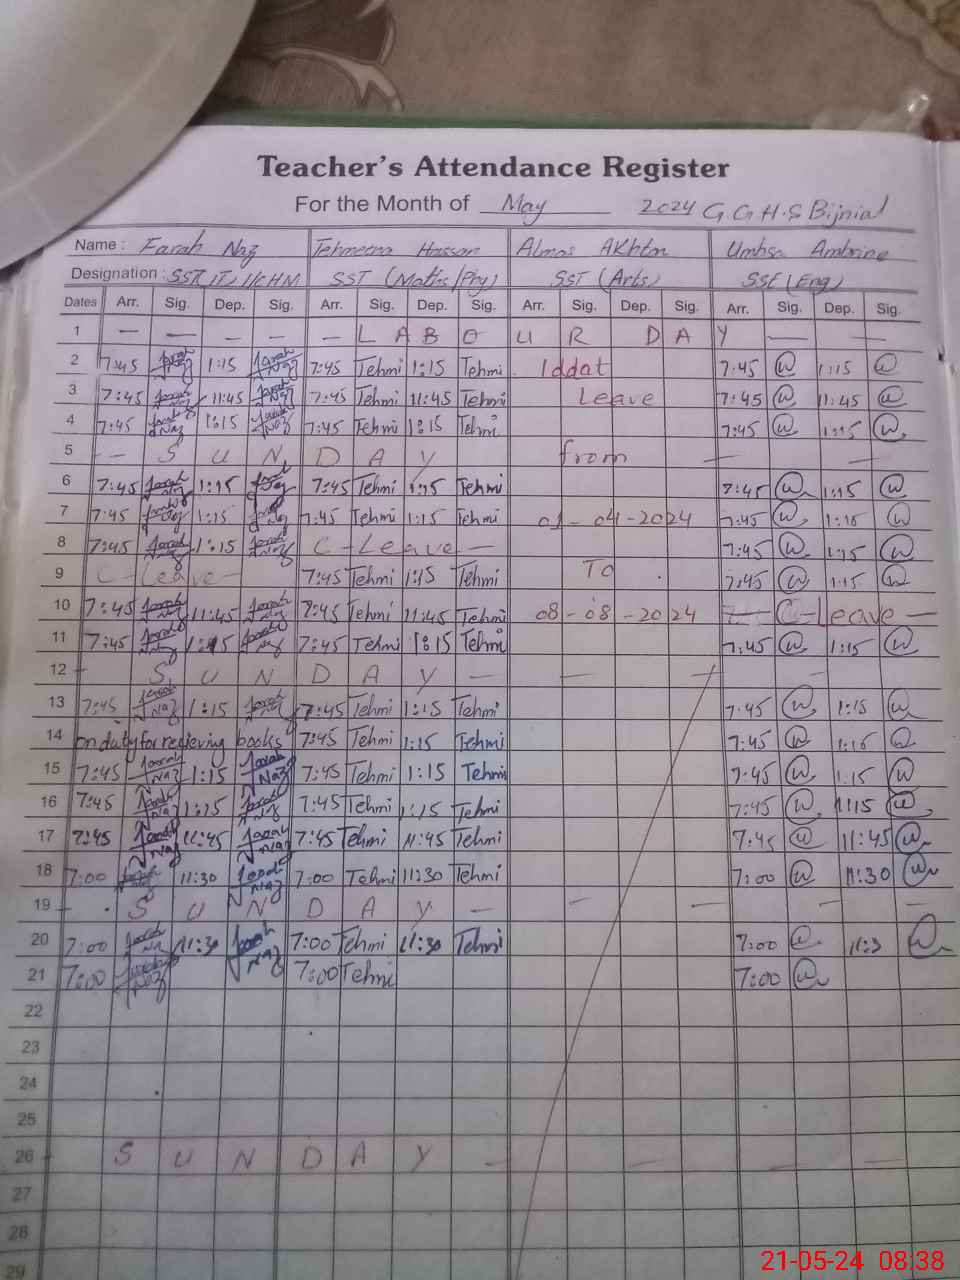 Teacher's Attendance Register
For the Month of May 2024 G G H.S Bijnial
Name : Farah Naz Tehmeena Hassan Almas Akhtar Umhsa Ambrine
Designation : SST (Maths/Phy) SST (Arts) SSE (Eng)
Dates Arr. Sig. Dep. Sig. Arr. Sig. Dep. Sig. Arr. Sig. Dep. Sig. Arr. Sig. Dep. Sig.
1 — — — — — L A B O U R D A Y — —
2 7:45 Farah Naz 1:15 Farah Naz 7:45 Tehmi 1:15 Tehmi Iddat 7:45 1:15
3 7:45 Farah Naz 11:45 Farah Naz 7:45 Tehmi 11:45 Tehmi Leave 7:45 11:45
4 7:45 Farah Naz 1:15 Farah Naz 7:45 Tehmi 1:15 Tehmi 7:45 1:15
5 — S U N D A Y from — —
6 7:45 Farah Naz 1:15 Farah Naz 7:45 Tehmi 1:15 Tehmi 7:45 1:15
7 7:45 Farah Naz 1:15 Farah Naz 7:45 Tehmi 1:15 Tehmi 01-04-2024 7:45 1:15
8 7:45 Farah Naz 1:15 Farah Naz C-Leave — 7:45 1:15
9 C-Leave- 7:45 Tehmi 1:15 Tehmi To 7:45 1:15
10 7:45 Farah Naz 11:45 Farah Naz 7:45 Tehmi 11:45 Tehmi 08-08-2024 C-Leave —
11 7:45 Farah Naz 1:15 Farah Naz 7:45 Tehmi 1:15 Tehmi 7:45 1:15
12 - S U N D A Y — — — -
13 7:45 Farah Naz 1:15 Farah Naz 7:45 Tehmi 1:15 Tehmi 7:45 1:15
14 on duty for recieving books 7:45 Tehmi 1:15 Tehmi 7:45 1:15
15 7:45 Farah Naz 1:15 Farah Naz 7:45 Tehmi 1:15 Tehmi 7:45 1:15
16 7:45 Farah Naz 1:15 Farah Naz 7:45 Tehmi 1:15 Tehmi 7:45 1:15
17 7:45 Farah Naz 11:45 Farah Naz 7:45 Tehmi 11:45 Tehmi 7:45 11:45
18 7:00 Farah Naz 11:30 Farah Naz 7:00 Tehmi 11:30 Tehmi 7:00 11:30
19 - S U N D A Y — — — — —
20 7:00 Farah Naz 11:30 Farah Naz 7:00 Tehmi 11:30 Tehmi 7:00 11:3
21 7:00 Farah Naz 7:00 Tehmi 7:00
22
23
24
25
26 - S U N D A Y — — — —
27
28
29
21-05-24 08:38